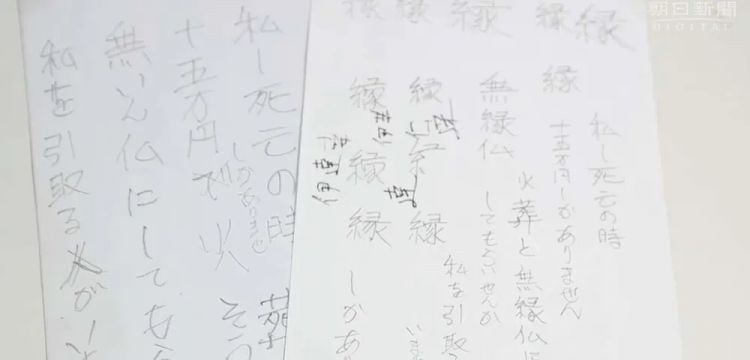 朝日新聞
DIGITAL
縁 縁 縁 縁 縁
縁
私し死亡の時
十五万円しかありません
火葬と無縁仏に
してもらいせんか
私を引取
いま
無縁仏
縁
縁
縁
縁
縁
しかあ
私し死亡の時
十五万円で火葬
しかありません
そう
無いん仏にしても
私を引取る人がい